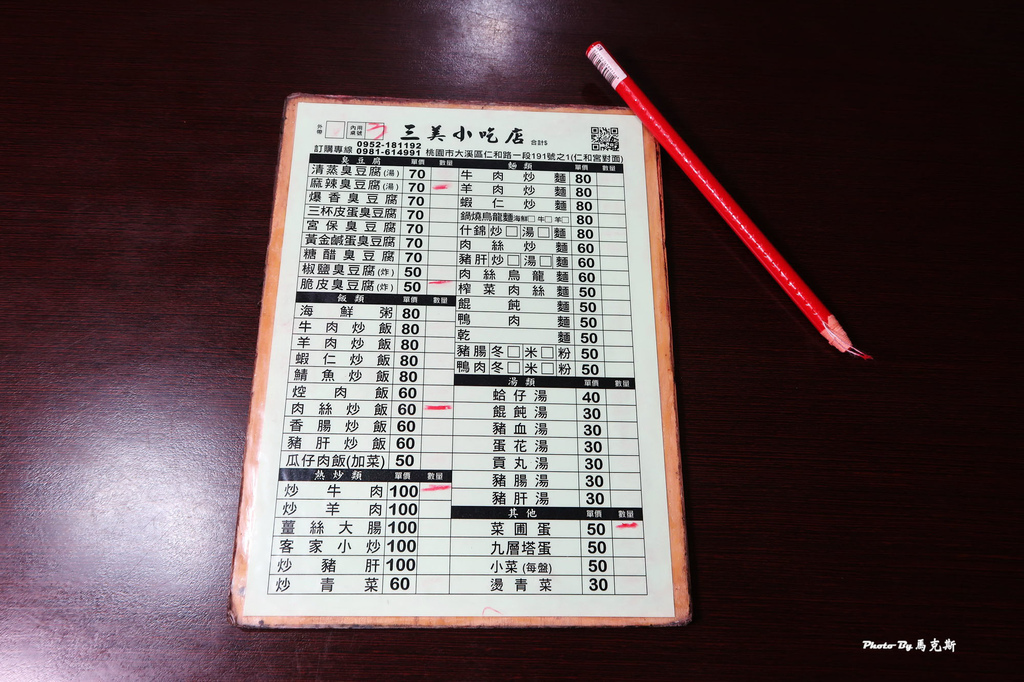 外帶 內用桌號 三美小吃店 合計$
訂購專線 0952-181192
0981-614991 桃園市大溪區仁和路一段191號之1(仁和宮對面)
臭豆腐 單價 數量
清蒸臭豆腐(湯) 70
麻辣臭豆腐(湯) 70
爆香臭豆腐 70
三杯皮蛋臭豆腐 70
宮保臭豆腐 70
黃金鹹蛋臭豆腐 70
糖醋臭豆腐 70
椒鹽臭豆腐(炸) 50
脆皮臭豆腐(炸) 50
飯類 單價 數量
海鮮粥 80
牛肉炒飯 80
羊肉炒飯 80
蝦仁炒飯 80
鯖魚炒飯 80
焢肉飯 60
肉絲炒飯 60
香腸炒飯 60
豬肝炒飯 60
瓜仔肉飯(加菜) 50
熱炒類 單價 數量
炒牛肉 100
炒羊肉 100
薑絲大腸 100
客家小炒 100
炒豬肝 100
炒青菜 60
麵類 單價 數量
牛肉炒麵 80
羊肉炒麵 80
蝦仁炒麵 80
鍋燒烏龍麵海鮮□牛□羊□ 80
什錦炒□湯□麵 80
肉絲炒麵 60
豬肝炒□湯□麵 60
肉絲烏龍麵 60
榨菜肉絲麵 50
餛飩麵 50
鴨肉麵 50
乾麵 50
豬腸冬□米□粉 50
鴨肉冬□米□粉 50
湯類 單價 數量
蛤仔湯 40
餛飩湯 30
豬血湯 30
蛋花湯 30
貢丸湯 30
豬腸湯 30
豬肝湯 30
其他 單價 數量
菜圃蛋 50
九層塔蛋 50
小菜(每盤) 50
燙青菜 30
Photo By 馬克斯